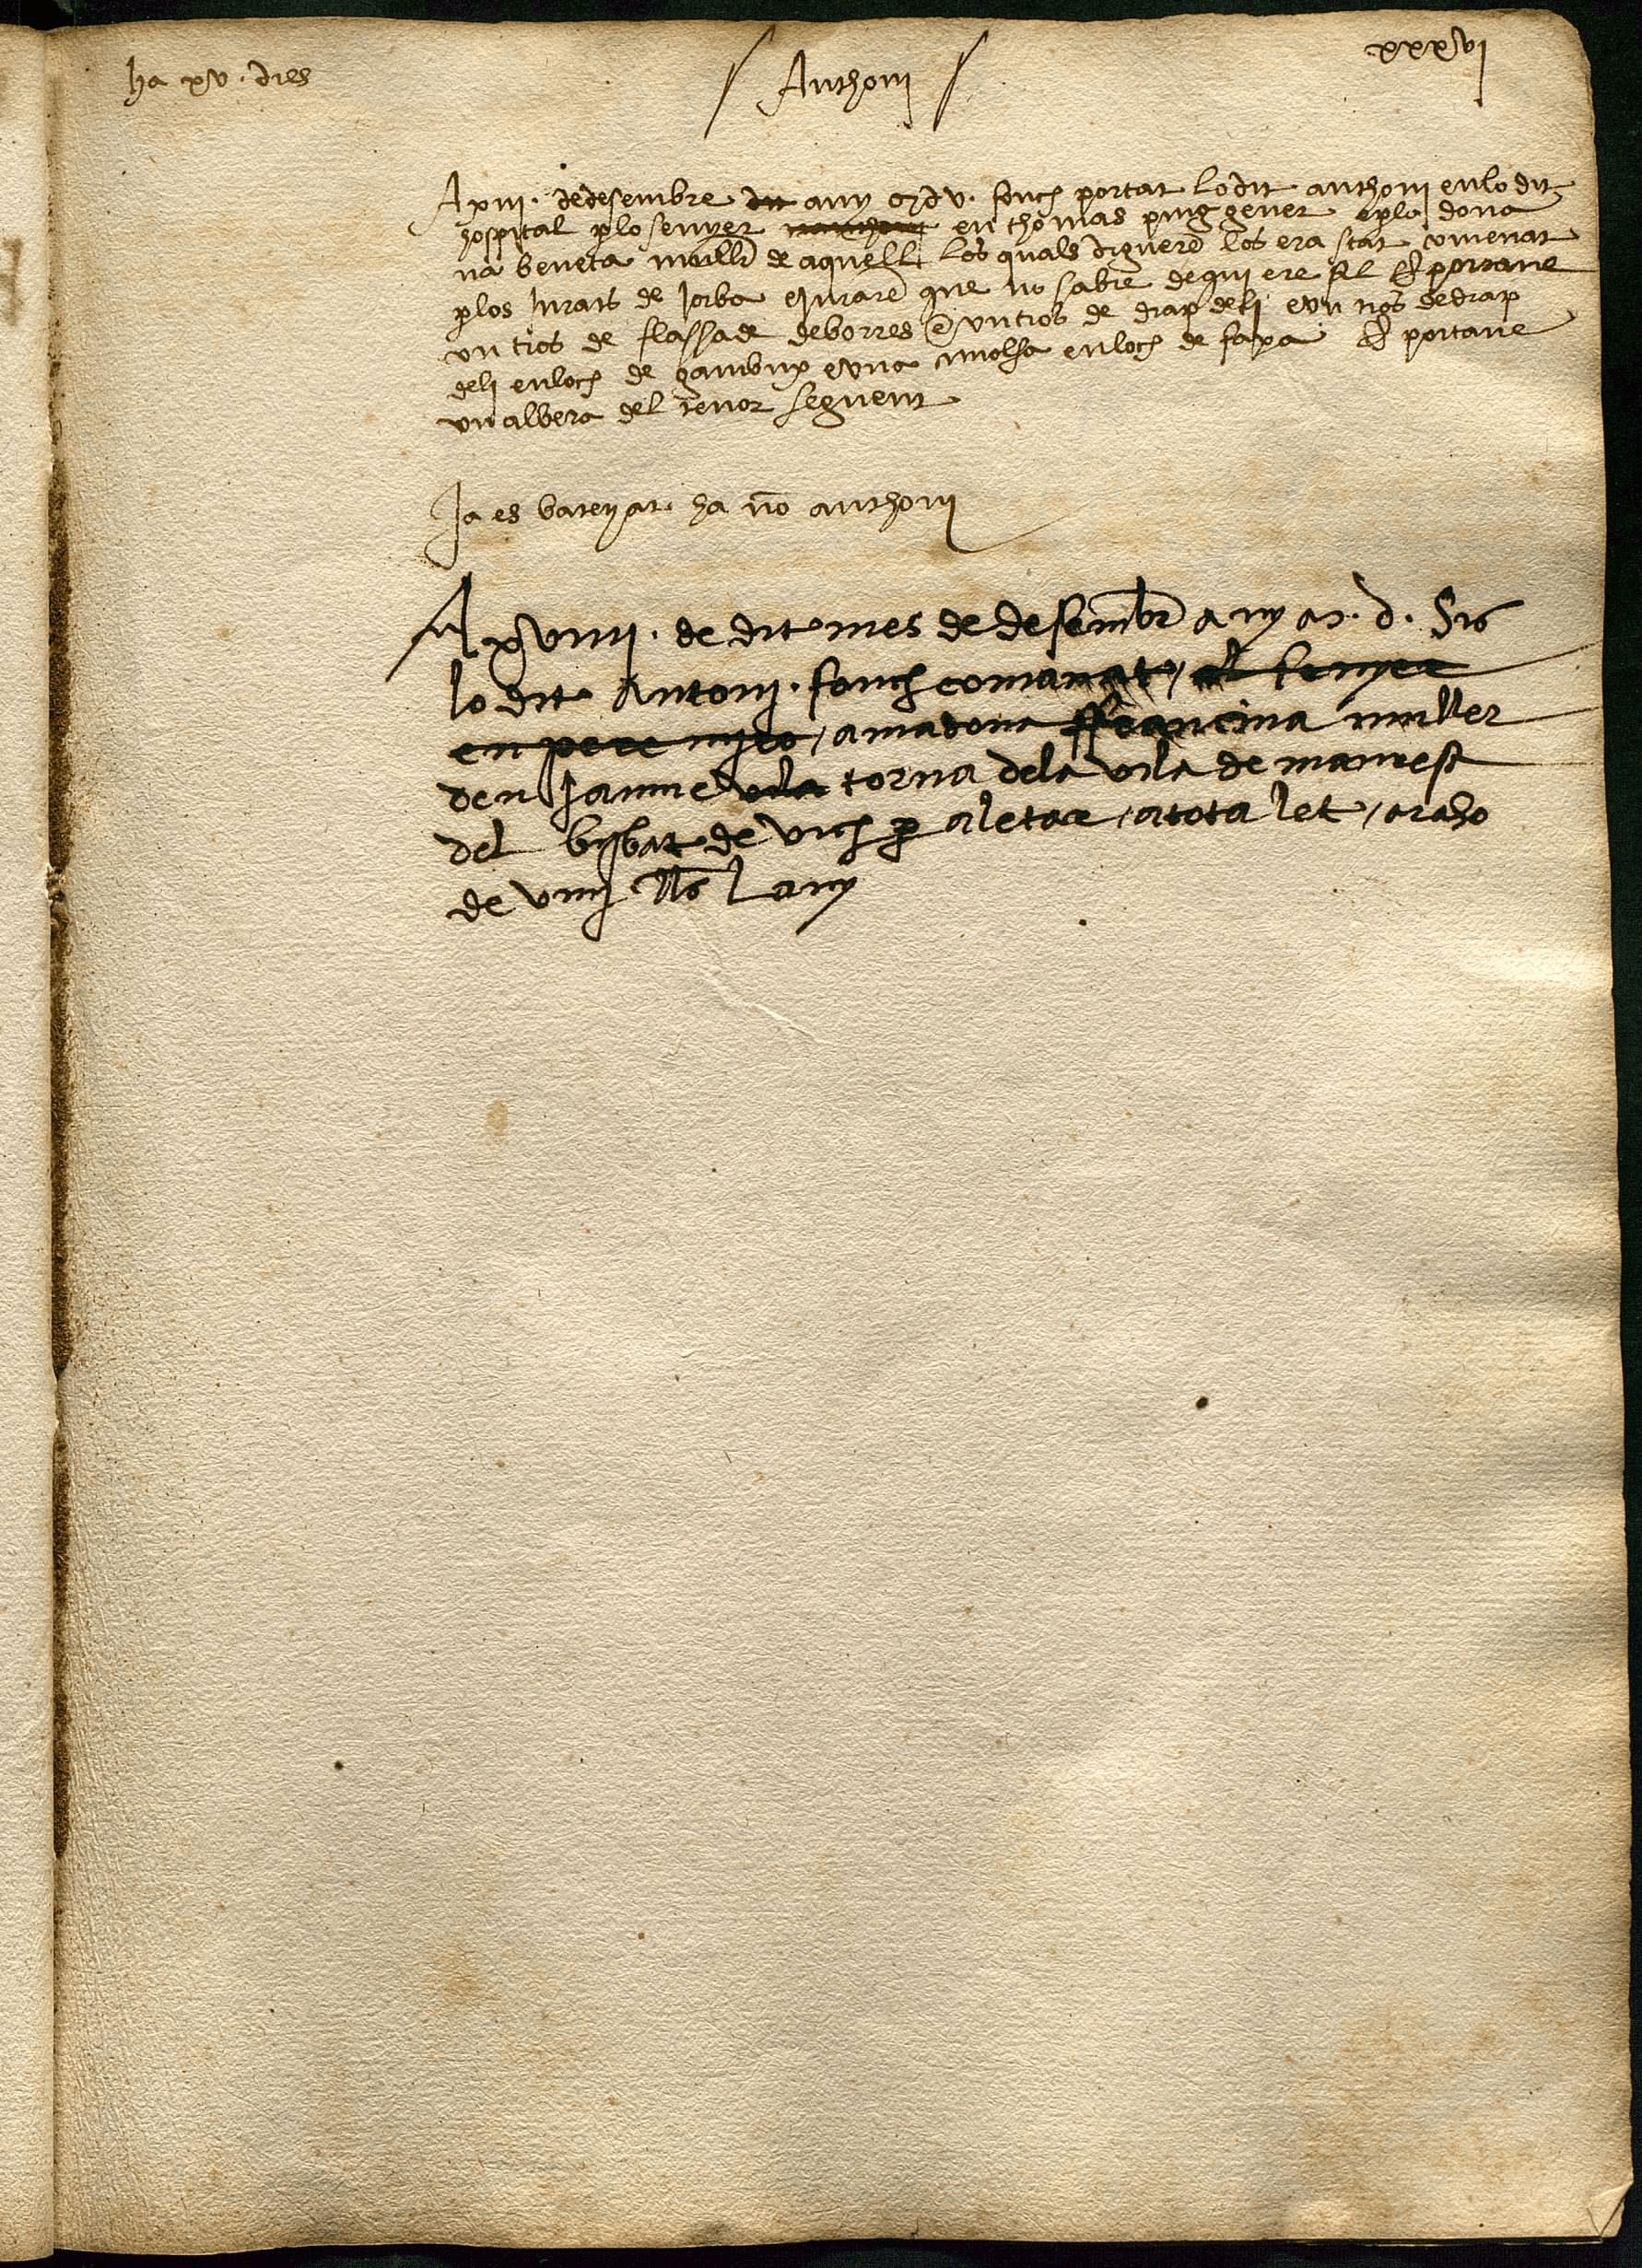 ha xv. dies
Anthonj
xxxvj
A xiii. de desembre dit any MDv. fonch portat lo dit anthonj en lo dit
hospital p lo senyer en thomas puiggener e p la dona
na beneta mullr de aquell los quals digueren los era stat comenat
p los jurats de Jorba e juraren que no sabien de qui ere fil E portave
un tros de flassade de borres e un tros de drap de li e un tros de drap
de li en loch de gambux e una en loch de faxa E portave
un albera del tenor seguent
Ja es bateyat ha nom anthonj
A xviiij. de dit mes de desembr any M. d. Sis
lo dit Antonj. fonch comanat / al senyer
en pere / a madona ffrancina muller
den Jaume vila torna dela vila de manresa
del bisbat de vich p aletar / a tota let / a raho
de viiij lls lany